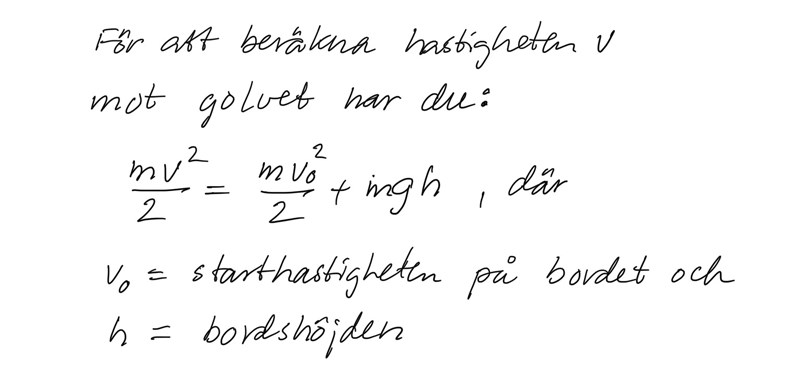 För att beräkna hastigheten v
mot golvet har du:
mv²/2 = mv₀²/2 + mgh , där
v₀ = starthastigheten på bordet och
h = bordshöjden